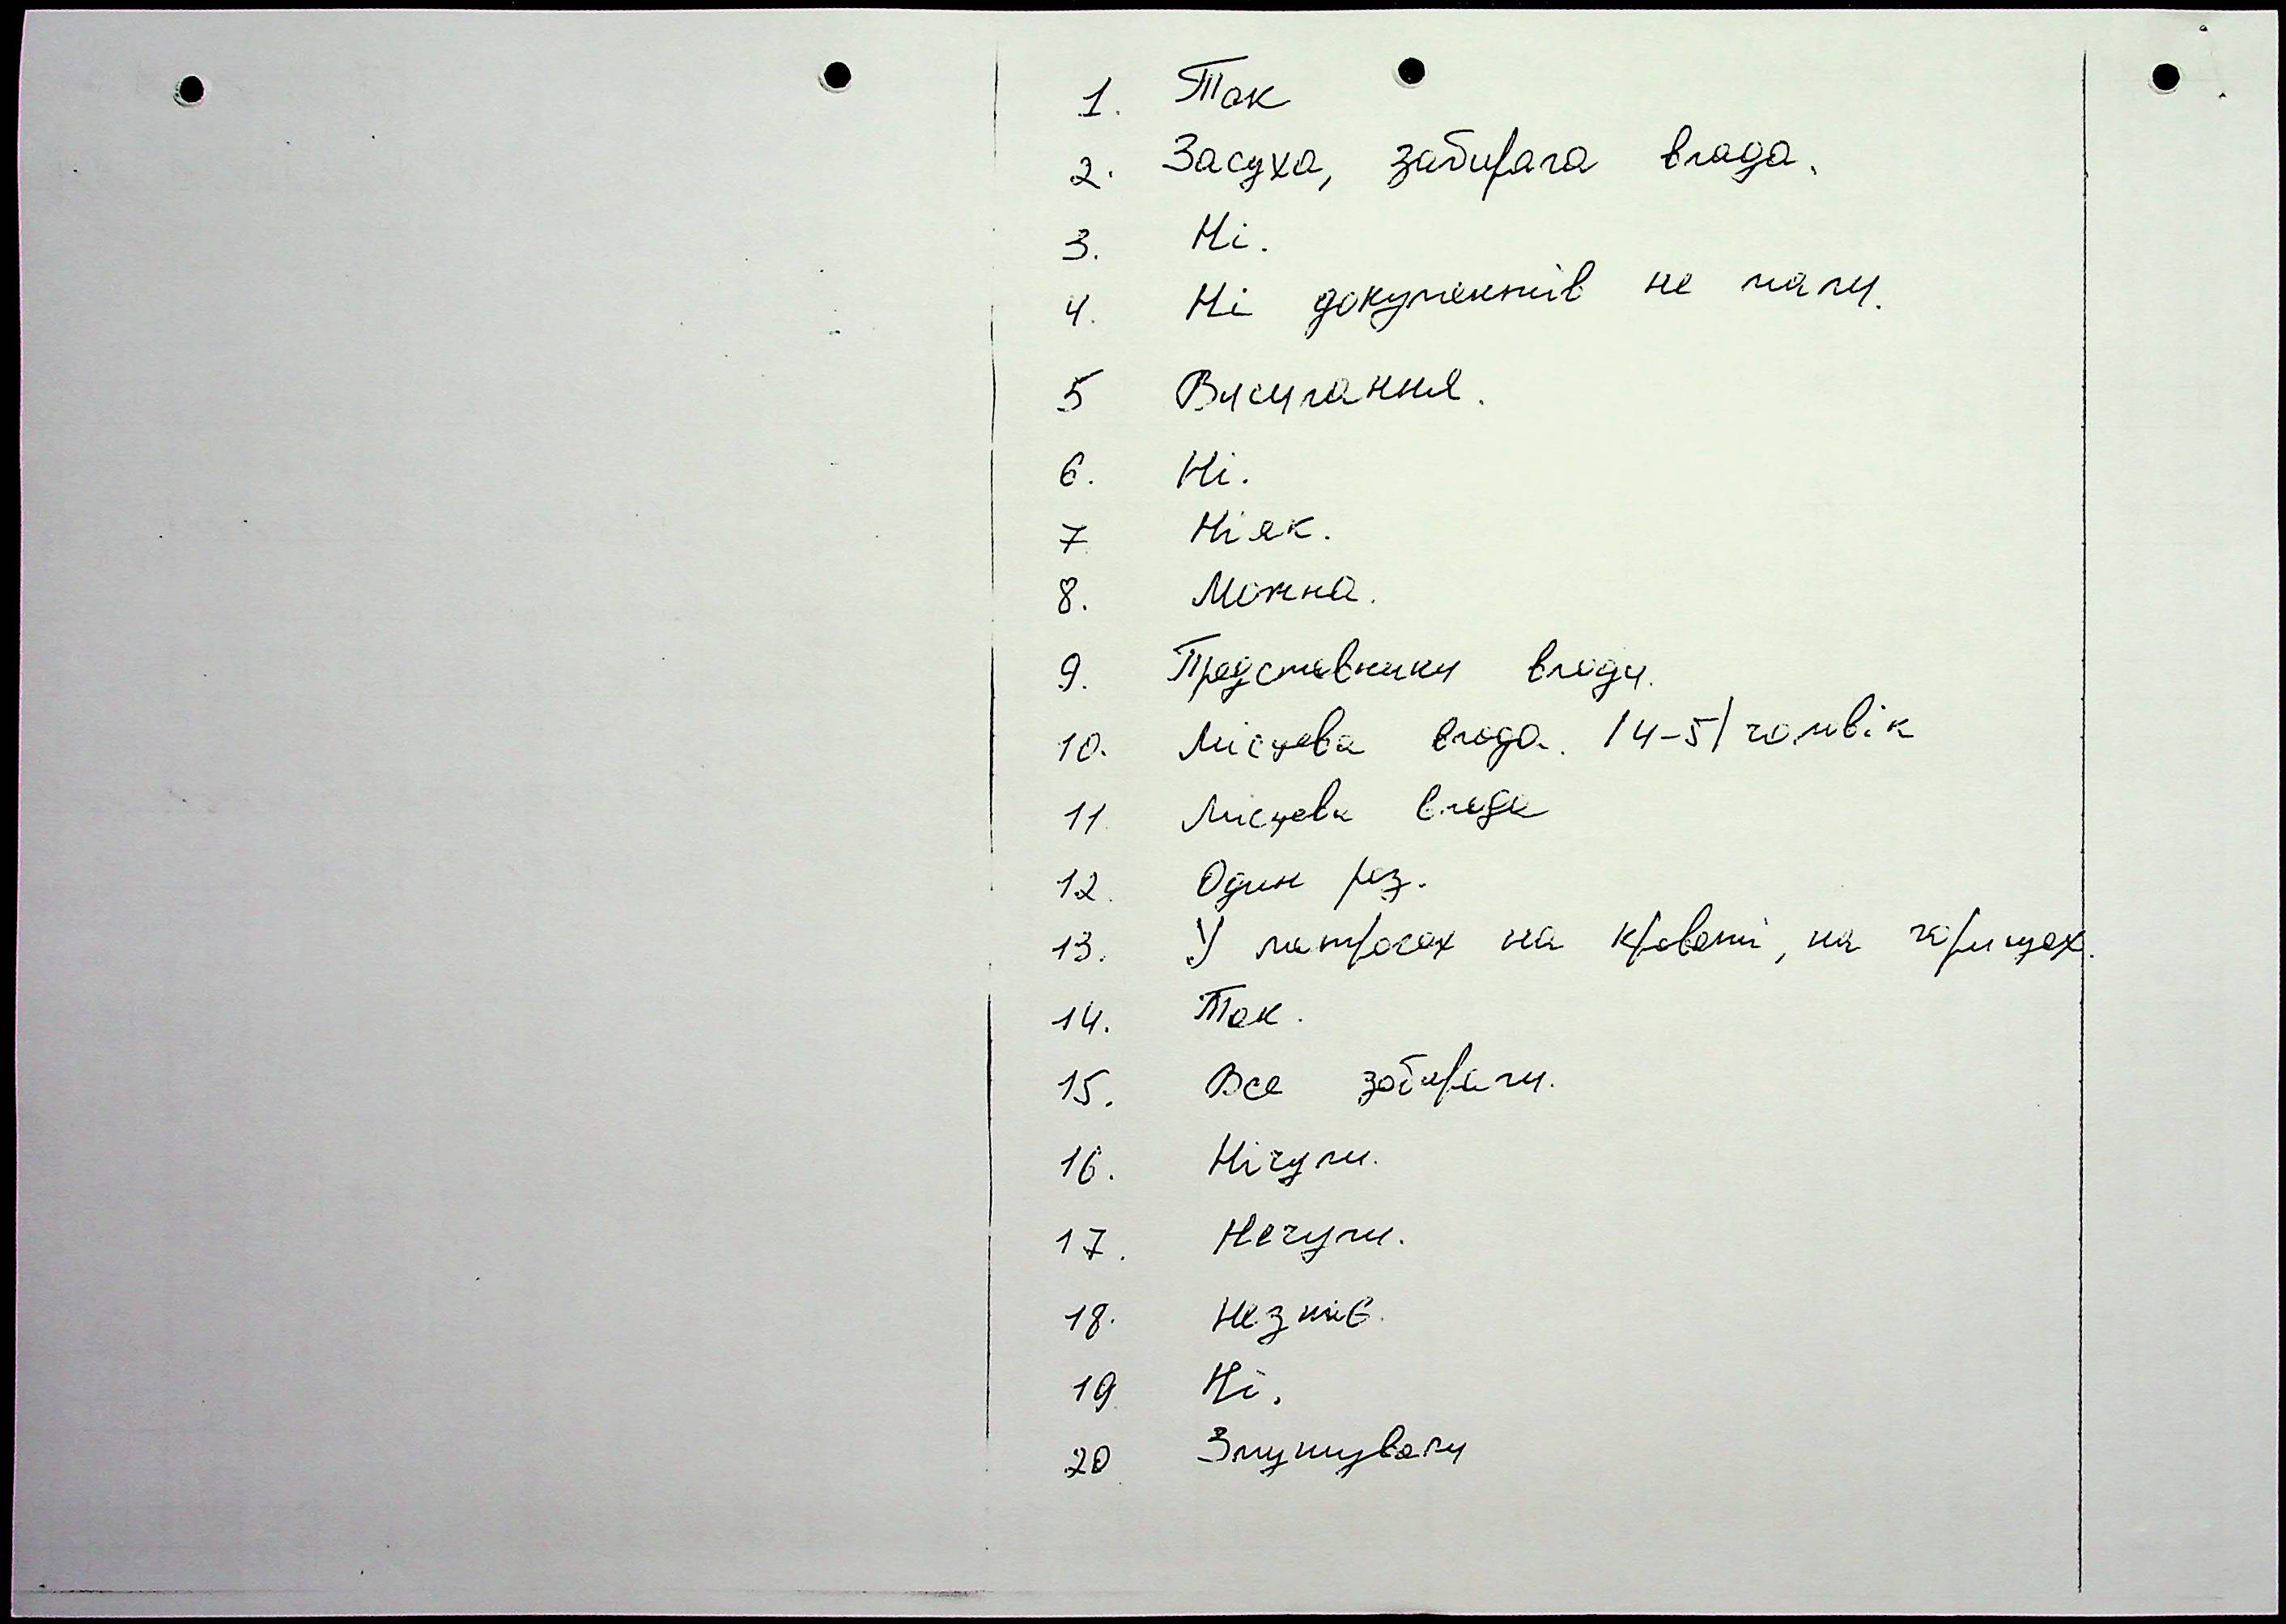 1. Так
2. Засуха, забирала влада.
3. Ні.
4. Ні документів не мали.
5 Висилання.
6. Ні.
7 Ніяк.
8. Можна.
9. Представники влади.
10. Місцева влада. /4-5/ чоловік
11. Місцева влада
12. Один раз.
13. У матрасах на кроваті, на горищах.
14. Так.
15. Все забирали.
16. Нічули.
17. Нечули.
18. Незнає.
19 Ні.
20 Змушували